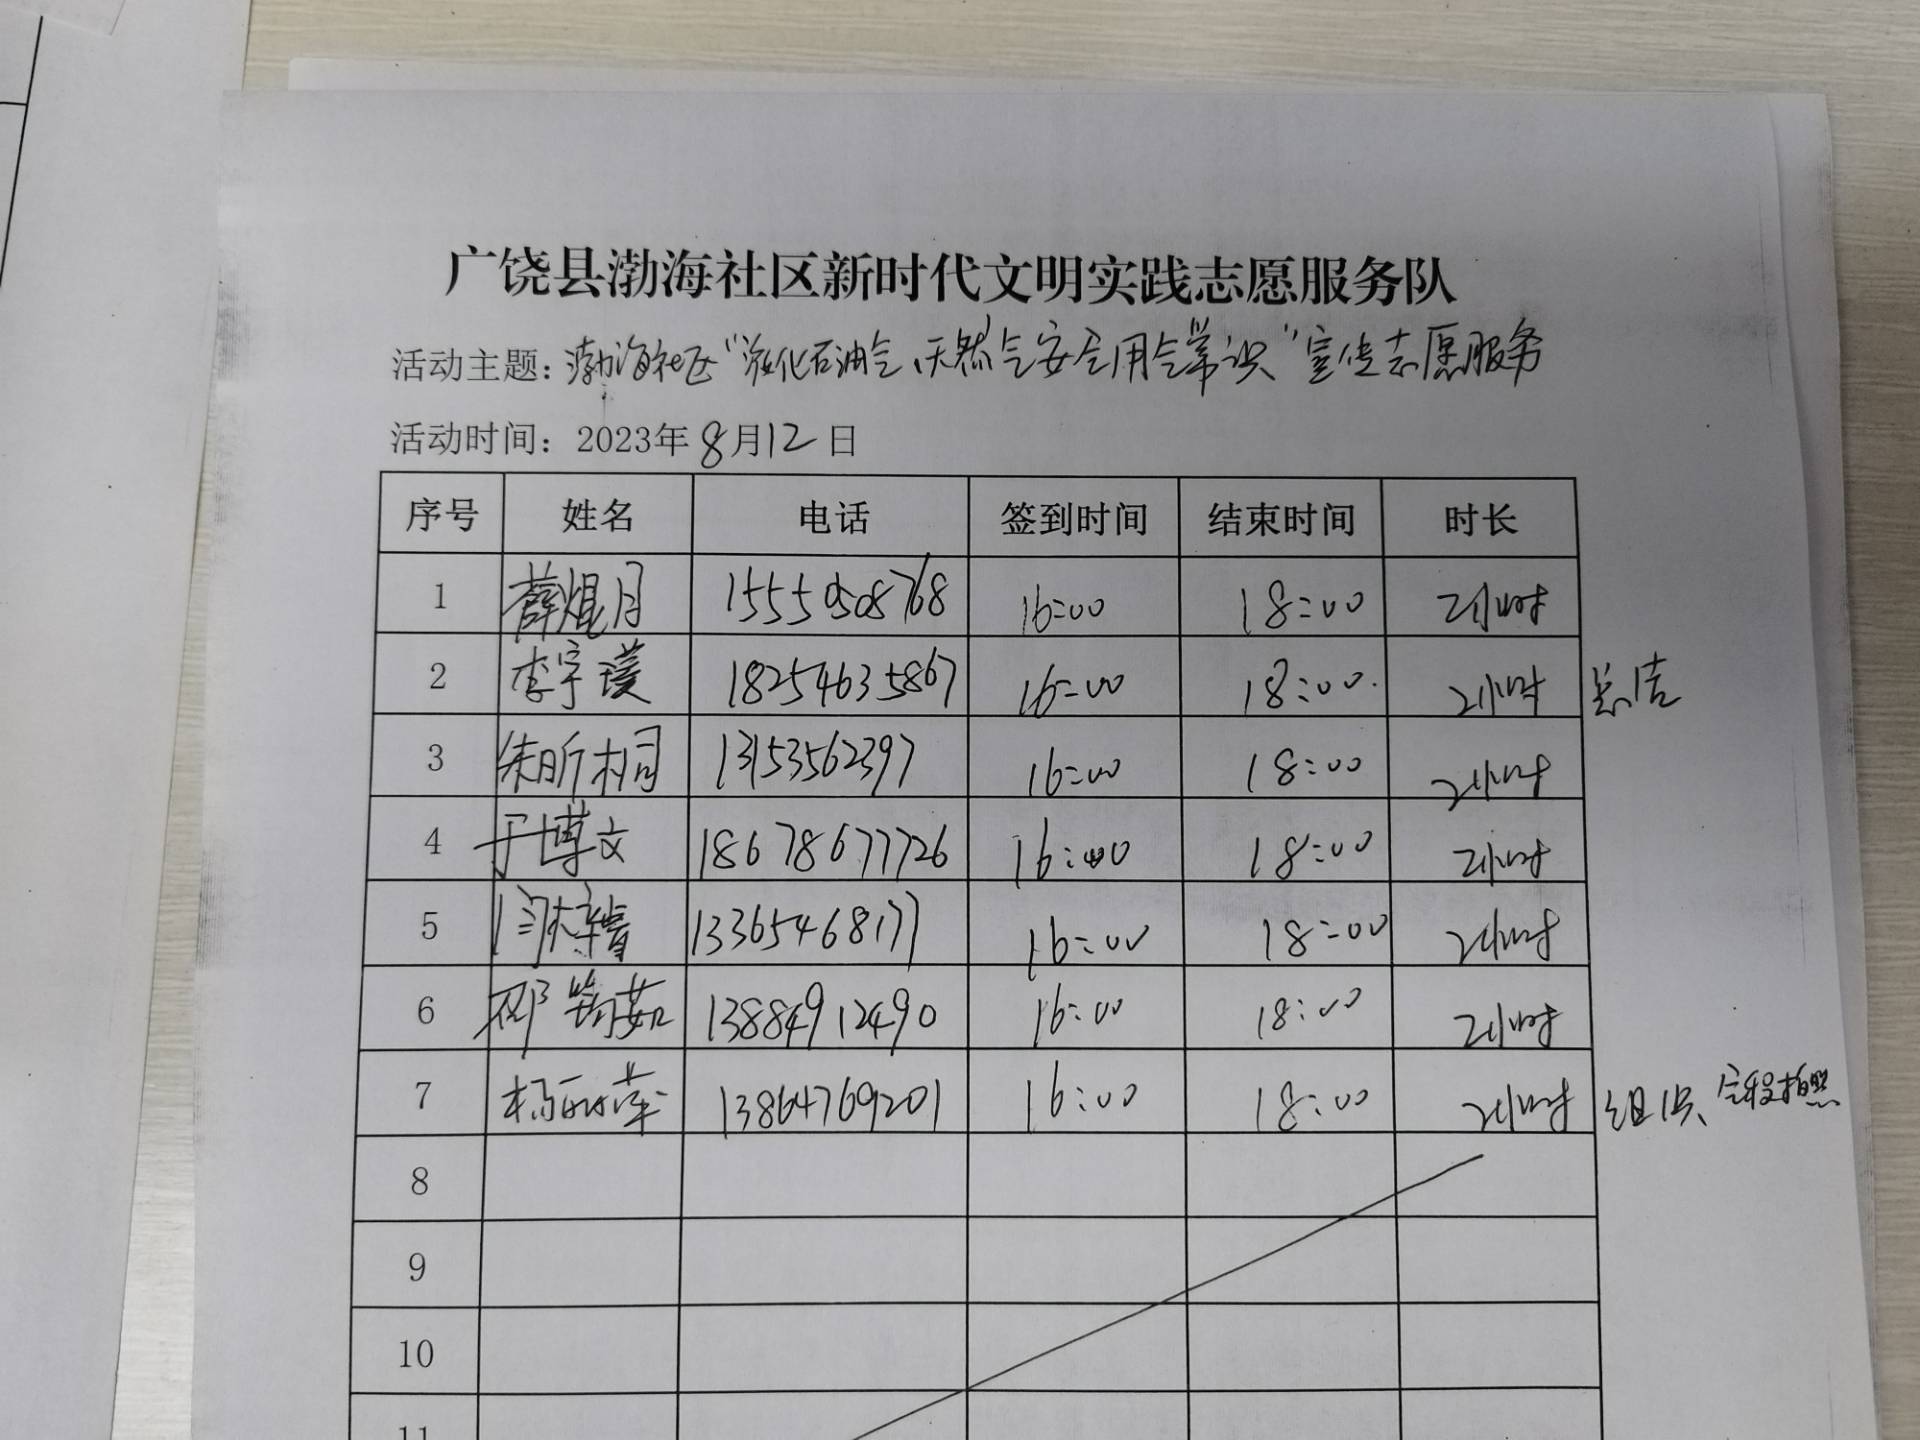 广饶县渤海社区新时代文明实践志愿服务队
活动主题：渤海社区“液化石油气、天然气安全用气常识”宣传志愿服务
活动时间：2023年8月12日
序号 姓名 电话 签到时间 结束时间 时长
1 薛焜月 15550508768 16:00 18:00 2小时
2 李宇瑛 18254635867 16:00 18:00. 2小时 总结
3 朱昕桐 13153562397 16:00 18:00 2小时
4 于博文 18678677726 16:00 18:00 2小时
5 闫梓睿 13365468177 16:00 18:00 2小时
6 邵筠茹 13884912490 16:00 18:00 2小时
7 杨丽萍 13864769201 16:00 18:00 2小时 组织、全程拍照
8
9
10
11